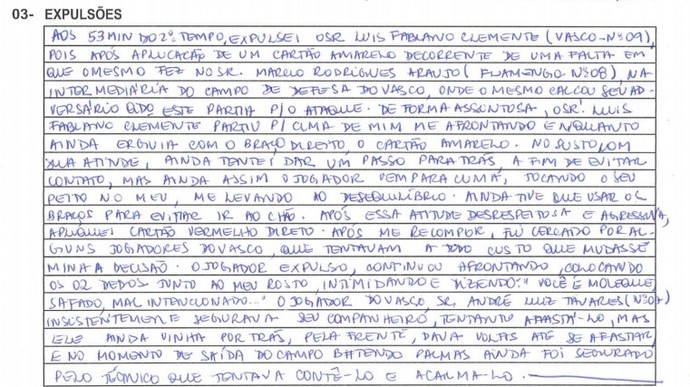 03- EXPULSÕES
AOS 53 MIN DO 2º TEMPO, EXPULSEI O SR. LUIS FABIANO CLEMENTE (VASCO-Nº09),
POIS APÓS APLICAÇÃO DE UM CARTÃO AMARELO DECORRENTE DE UMA FALTA EM
QUE O MESMO FEZ NO SR. MARCIO RODRIGUES ARAUJO (FLAMENGO Nº08), NA
INTERMEDIÁRIA DO CAMPO DE DEFESA DO VASCO, ONDE O MESMO CALÇOU SEU AD-
VERSÁRIO QDO ESTE PARTIA P/ O ATAQUE. DE FORMA ASSUSTOSA, O SR. LUIS
FABIANO CLEMENTE PARTIU P/ CIMA DE MIM ME AFRONTANDO ENQUANTO
AINDA ERGUIA COM O BRAÇO DIREITO, O CARTÃO AMARELO. NO SUSTO COM
SUA ATITUDE, AINDA TENTEI DAR UM PASSO PARA TRÁS, A FIM DE EVITAR
CONTATO, MAS AINDA ASSIM O JOGADOR VEM PARA CIMA, TOCANDO O SEU
PEITO NO MEU, ME LEVANDO AO DESEQUILÍBRIO. AINDA TIVE QUE USAR OS
BRAÇOS PARA EVITAR IR AO CHÃO. APÓS ESSA ATITUDE DESRESPEITOSA E AGRESSIVA,
APLIQUEI CARTÃO VERMELHO DIRETO. APÓS ME RECOMPOR, FUI CERCADO POR AL-
GUNS JOGADORES DO VASCO, QUE TENTAVAM A TODO CUSTO QUE MUDASSE
MINHA DECISÃO. O JOGADOR EXPULSO, CONTINUOU AFRONTANDO, COLOCANDO
OS 02 DEDOS JUNTO AO MEU ROSTO, INTIMIDANDO E DIZENDO: "VOCÊ É MOLEQUE,
SAFADO, MAL INTENCIONADO..." O JOGADOR DO VASCO, SR. ANDRÉ LUIZ TAVARES (Nº07)
INSISTENTEMENTE SEGURAVA SEU COMPANHEIRO, TENTANTO AFASTÁ-LO, MAS
ELE AINDA VINHA POR TRÁS, PELA FRENTE, DAVA VOLTAS ATÉ SE AFASTAR,
E NO MOMENTO DE SAÍDA DO CAMPO BATENDO PALMAS AINDA FOI SEGURADO
PELO TÉCNICO QUE TENTAVA CONTÊ-LO E ACALMA-LO.